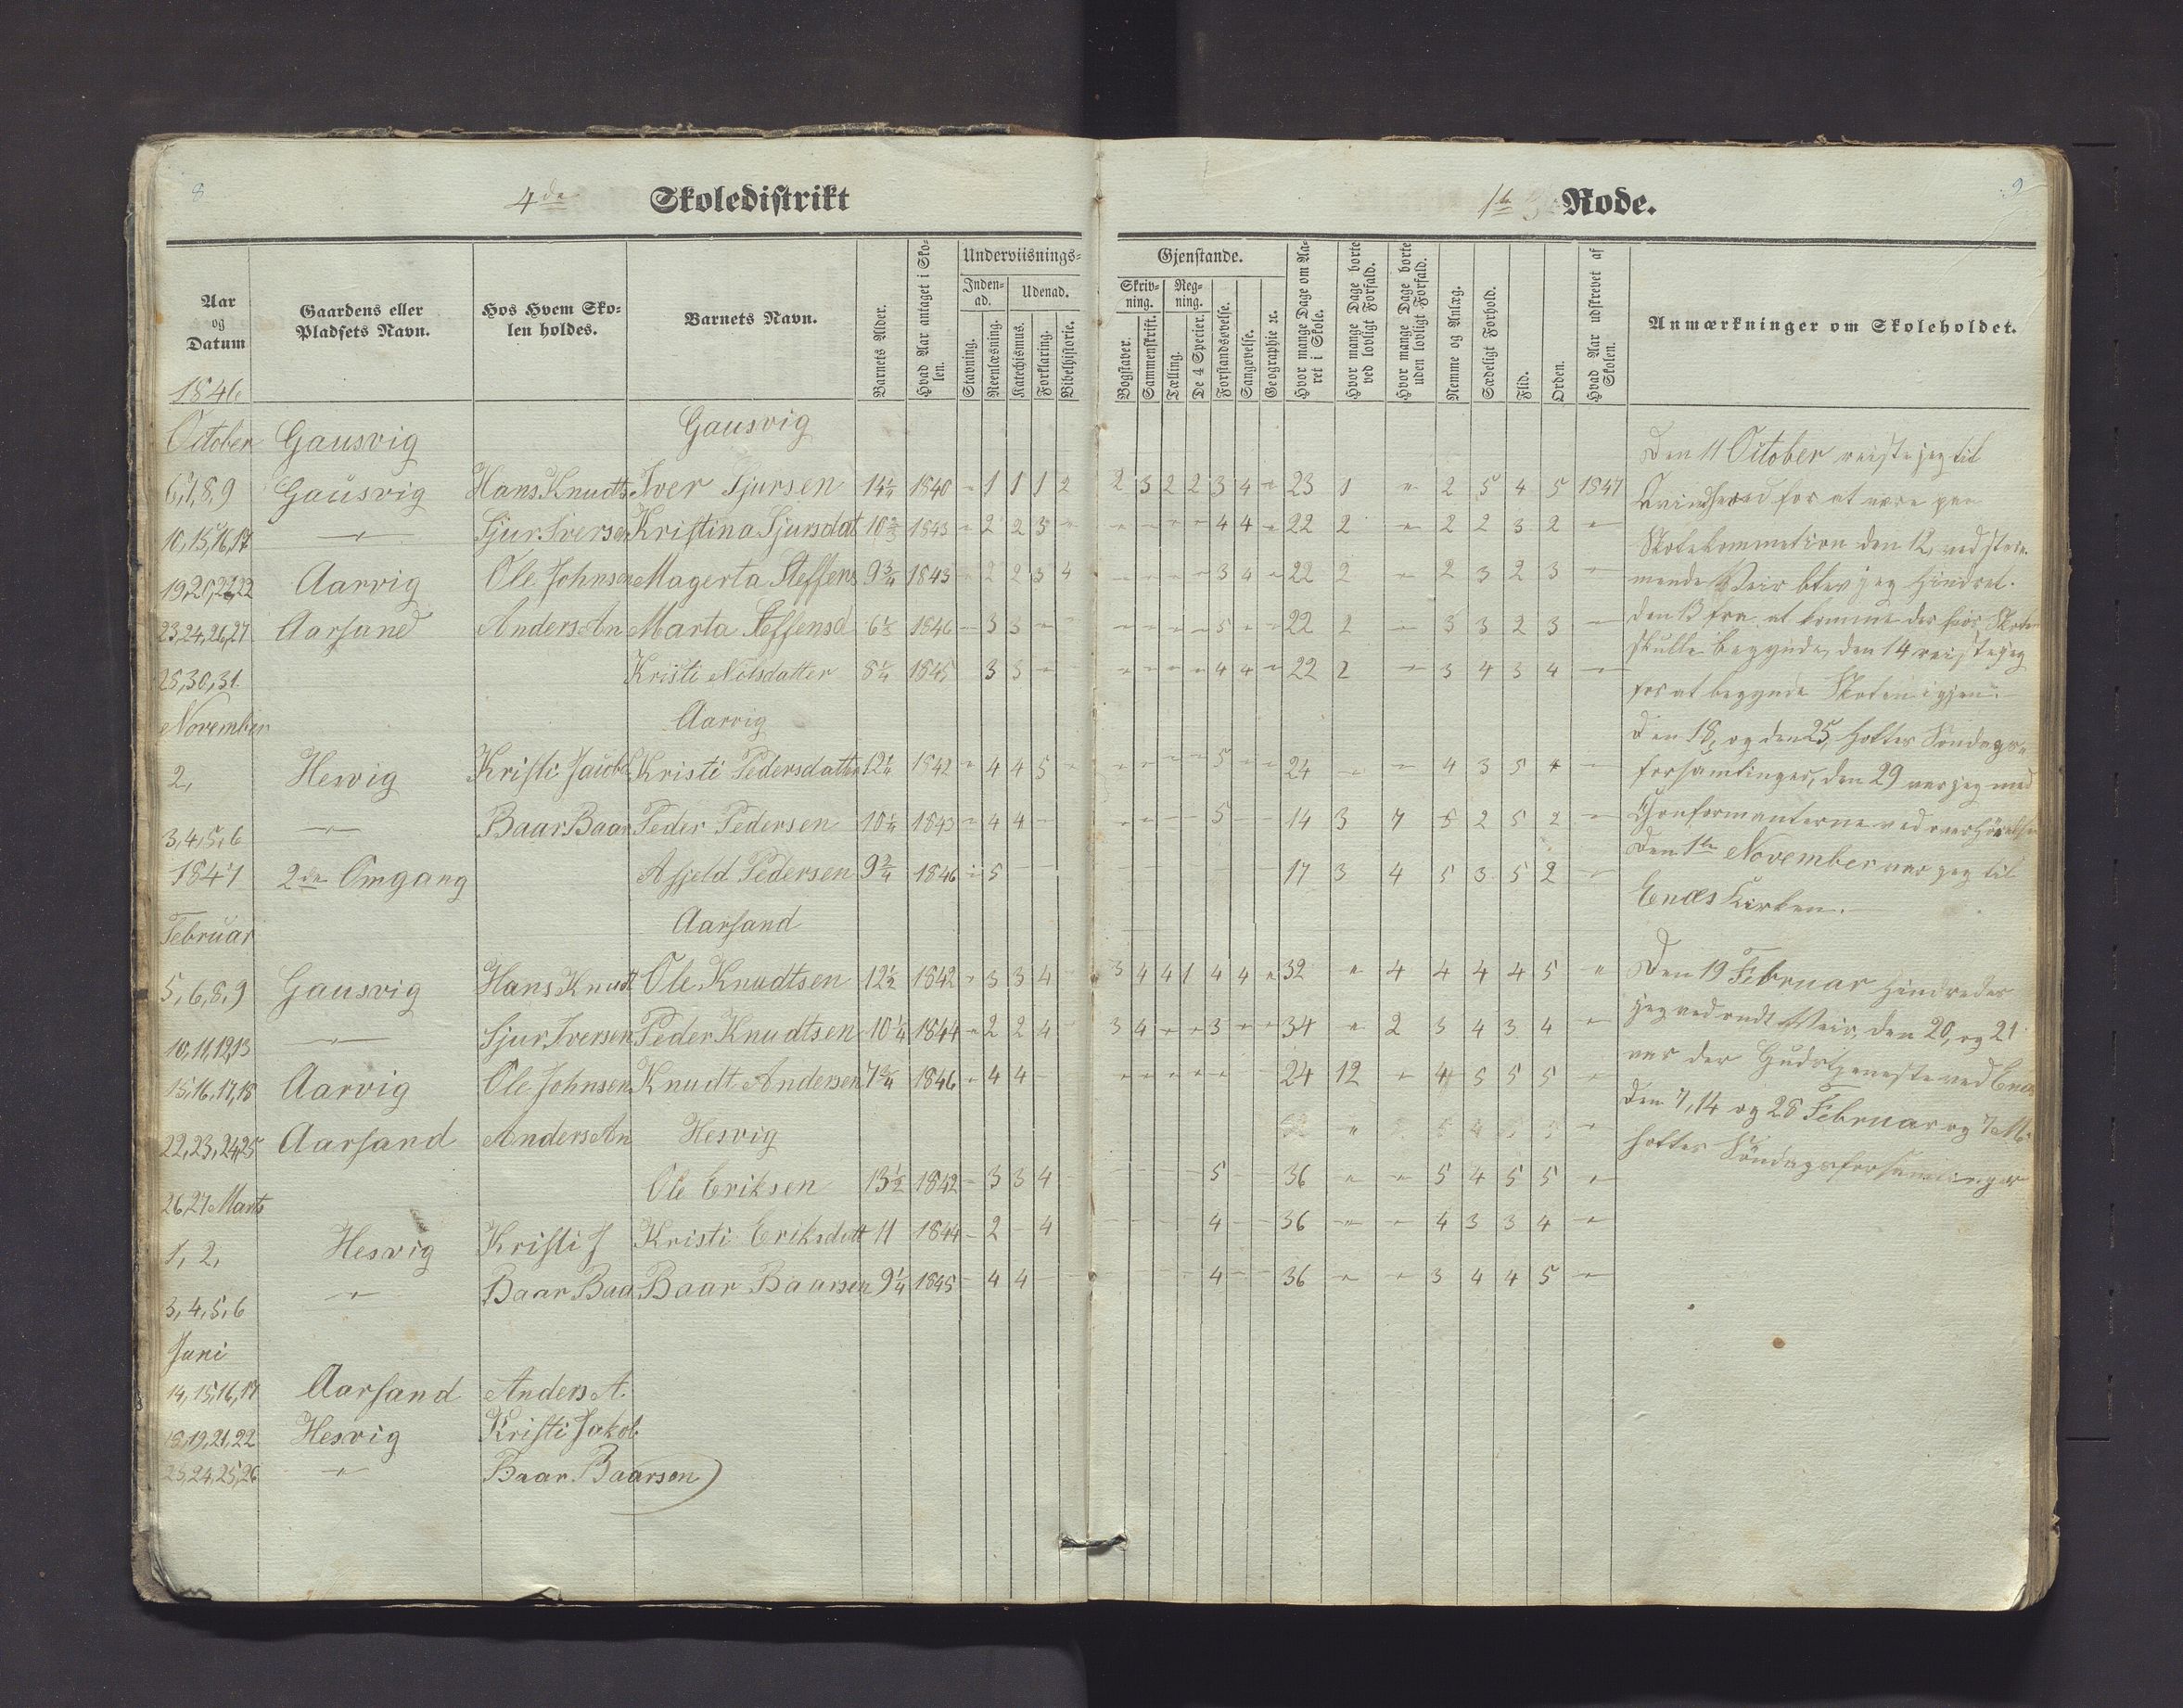 8
4de Skoledistrikt
Aar og Datum
Gaardens eller Pladsets Navn.
Hos Hvem Skolen holdes.
Barnets Navn.
Barnets Alder.
Hvad Aar antaget i Skolen.
Underviisnings-
Inden-ad.
Udenad.
Stavning.
Reenlæsning.
Katechismus.
Forklaring.
Bibelhistorie.
1846
Gausvig
October Gausvig
6,7,8,9 Gausvig Hans Knudts Iver Sjursen 14¼ 1840 " 1 1 1 2
10,15,16,17 " Sjur Iversen Kristina Sjursdat 10⅔ 1843 " 2 2 3 "
19,20,21,22 Aarvig Ole Johnsen Magerta Steffens 9¾ 1843 2 2 3 4
23,24,26,27 Aarsand Anders An Marta Steffensd 1846 3 3
28,30,31. Kristi Nilsdatter 8¼ 1845 3 3
November Aarvig
2, Hesvig Kristi Jacobs Kristi Pedersdatter 12¼ 1842 " 4 4 5
3,4,5,6 " Baar Baar Peder Pedersen 10¼ 1843 " 4 4
1847 2den Omgang Asjeld Pedersen 9¾ 1846 5
Februar Aarsand
5,6,8,9 Gausvig Hans Knudt Ole Knudtsen 12½ 1842 " 3 3 4
10,11,12,13 " Sjur Iversen Peder Knudtsen 10¼ 1844 " 2 2 4
15,16,17,18 Aarvig Ole Johnsen Knudt Andersen 7¾ 1846 " 4 4
22,23,24,25 Aarsand Anders An Hesvig
26,27 Marts Ole Eriksen 13½ 1842 3 3 4
1, 2, Hesvig Kristi J Kristi Eriksdatt 11 1844 2 4
3,4,5,6 " Baar Baa Baar Baarsen 9¼ 1845 4 4
Juni
14,15,16,17 Aarsand Anders A.
18,19,21,22 Hesvig Kristi Jakob
23,24,25,26 " Baar Baarsen
9
1te Rode.
Gjenstande.
Skriv-ning.
Reg-ning.
Bogstaver.
Sammenskrift.
Tælling.
De 4 Specier.
Forstandsøvelse.
Sangøvelse.
Geographie ꝛc.
Hvor mange Dage om Aaret i Skole.
Hvor mange Dage borte ved lovligt Forfald.
Hvor mange Dage borte uden lovligt Forfald.
Nemme og Anlæg.
Sædeligt Forhold.
Flid.
Orden.
Hvad Aar udskrevet af Skolen.
Anmærkninger om Skoleholdet.
2 3 2 2 3 4 " 23 1 " 2 5 4 5 1847
" " " " 4 4 " 22 2 " 2 2 3 2 "
" " " " 3 4 " 22 2 " 2 3 2 3 "
" " " " 5 " " 22 2 " 3 3 2 3 "
" " " " 4 4 " 22 2 " 3 4 3 4 "
" " " " 5 " " 24 " " 4 3 5 4 "
5 14 3 7 5 2 5 2 "
17 3 4 5 3 5 2 "
3 4 4 1 4 4 " 32 " 4 4 4 4 5 "
3 4 " " 3 " " 34 " 2 3 4 3 4 "
" " " " " 24 12 " 4 5 5 5 "
5 36 " " 5 4 5 5 "
4 36 " " 4 3 3 4 "
4 36 " " 3 4 4 5 "
Den 11 October reiste jeg til
Qvindherred for at være paa
Skolekommetion den 12, ved
Veir blev jeg Hindret.
den 13 fra at komme der hvor Skolen
skulle begynde, den 14 reiste jeg
for at begynde Skolen igjen.
Den 18, og den 25, holtes Søndags-
forsamlinger, den 29 var jeg med
Confirmanterne ved
Den 1te November var jeg til
Enæs Kirken.
Den 19 Februar Hindredes
jeg ved ondt Veir, den 20, og 21
var der Gudstjeneste ved Enæs
Den 7, 14 og 28 Februar og 7 M.
holtes Søndagsforsamlinger